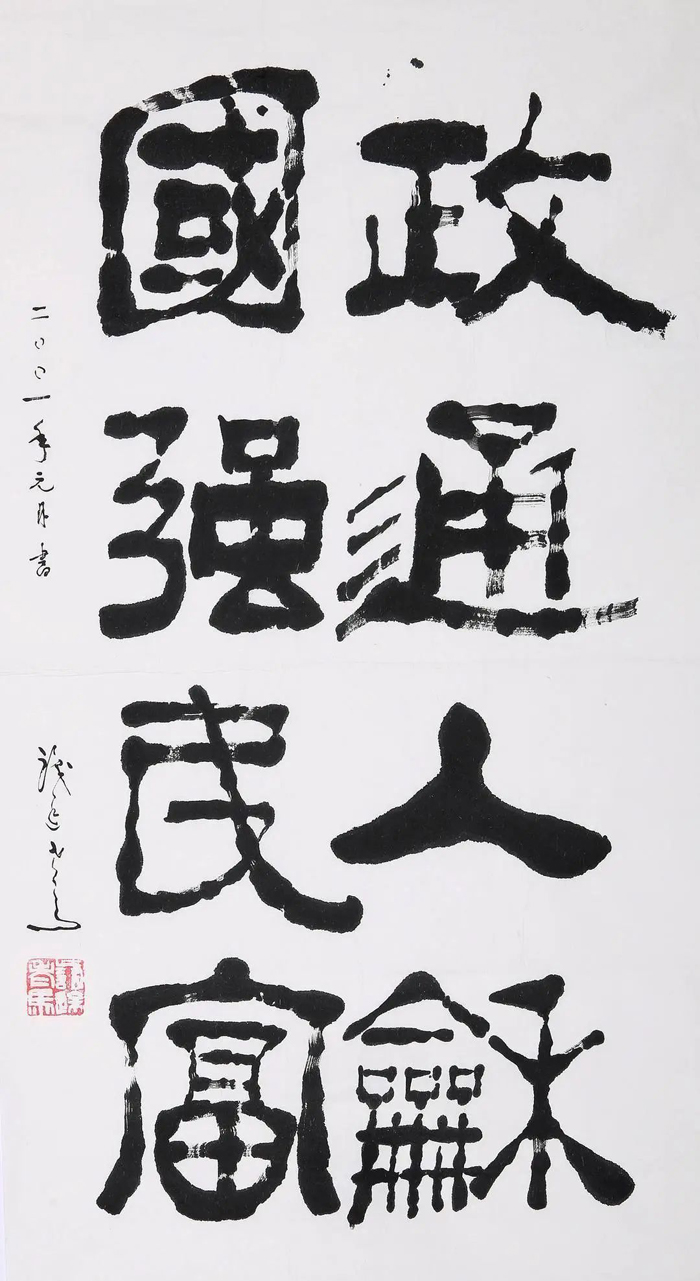 政通人龢
國強民富
二〇〇一年元月書